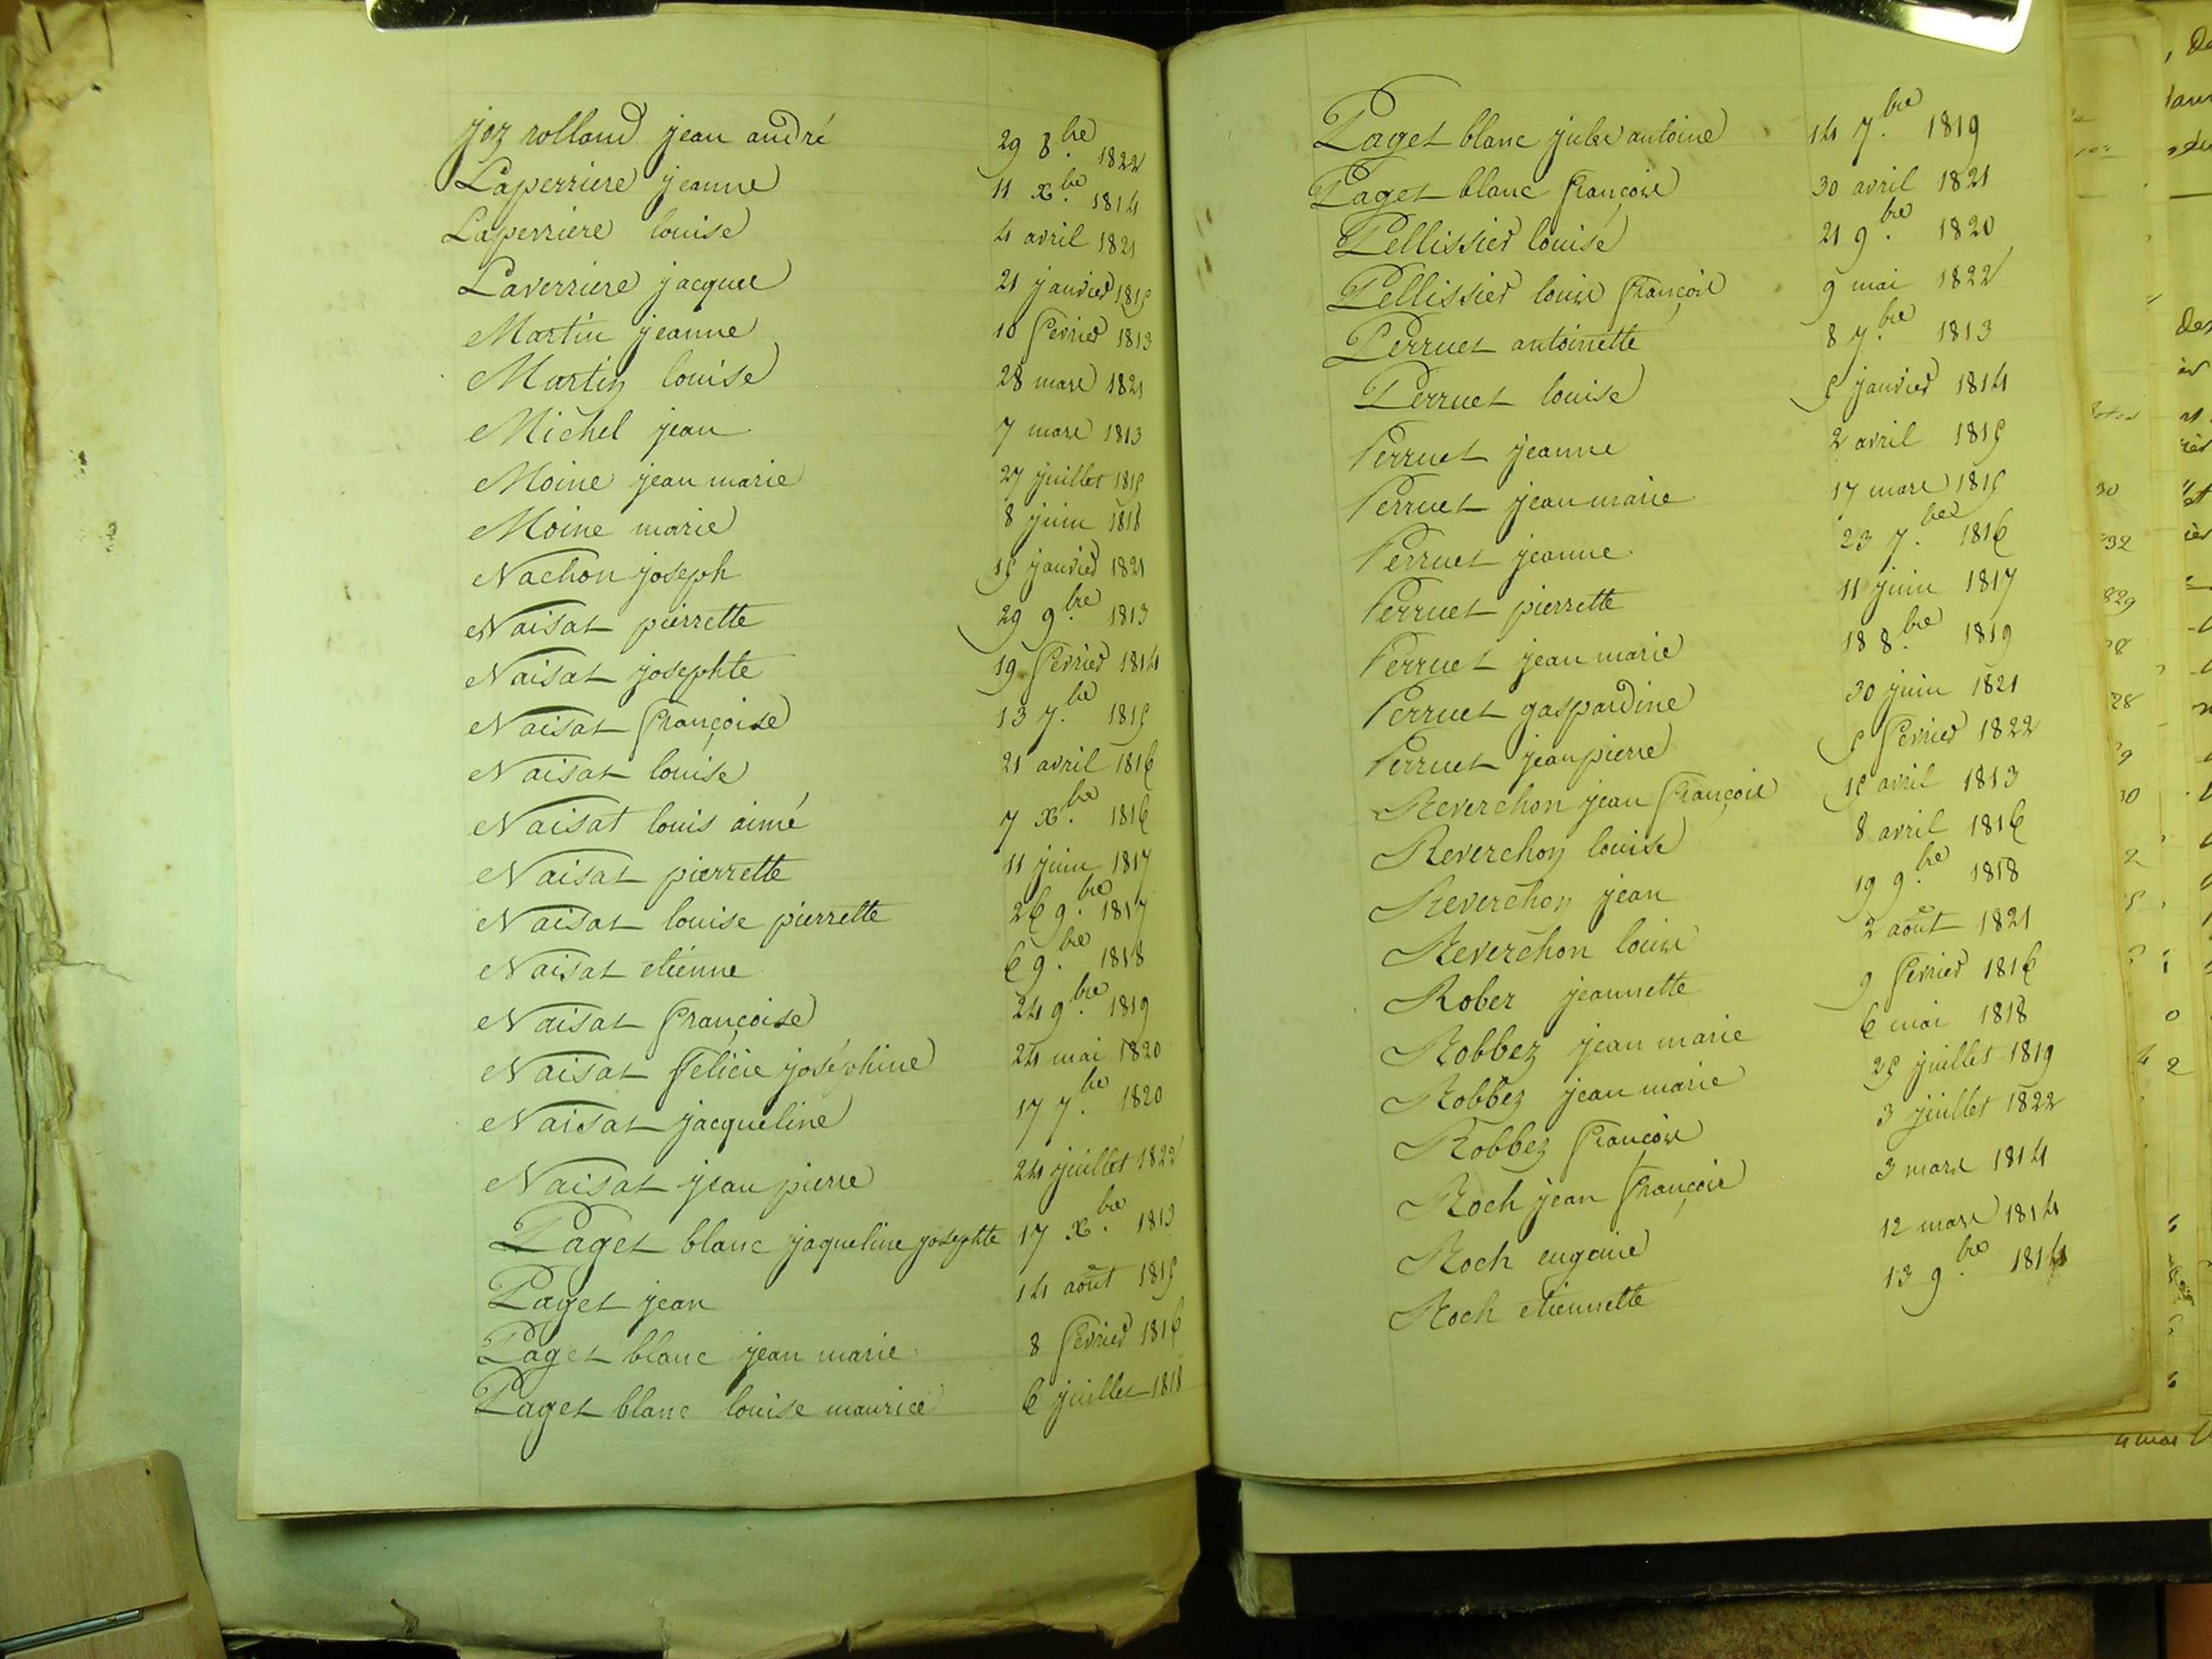 joz rolland jean andré 29 8.bre 1822
Laperriere jeanne 11 x.bre 1814
Laperriere louise 4 avril 1821
Laverriere jacques 21 janvier 1815
Martin jeanne 10 fevrier 1813
Martin louise 28 mars 1821
Michel jean 7 mars 1813
Moine jean marie 27 juillet 1815
Moine marie 8 juin 1818
Nachon joseph 15 janvier 1821
Naisat pierrette 29 9.bre 1813
Naisat josephte 19 fevrier 1814
Naisat françoise 13 7.bre 1815
Naisat louise 21 avril 1816
Naisat louis aimé 7 x.bre 1816
Naisat pierrette 11 juin 1817
Naisat louise pierrette 26 9.bre 1817
Naisat etienne 6 9.bre 1818
Naisat françoise 24 9.bre 1819
Naisat felicie joséphine 24 mai 1820
Naisat jacqueline 17 7.bre 1820
Naisat jean pierre 24 juillet 1822
Paget blanc jaqueline josephte 17 x.bre 1813
Paget jean 14 août 1815
Paget blanc jean marie 8 fevrier 1816
Paget blanc louise maurice 6 juillet 1818
Paget blanc jules antoine 14 7.bre 1819
Paget blanc françois 30 avril 1821
Pellissier louise 21 9.bre 1820
Pellissier louis françois 9 mai 1822
Perruet antoinette 8 7.bre 1813
Perruet louise 5 janvier 1814
Perruet jeanne 2 avril 1815
Perruet jean marie 17 mars 1815
Perruet jeanne 23 7.bre 1816
Perruet pierrette 11 juin 1817
Perruet jean marie 18 8.bre 1819
Perruet gaspardine 30 juin 1821
Perruet jean pierre 5 fevrier 1822
Reverchon jean françois 15 avril 1813
Reverchon louise 8 avril 1816
Reverchon jean 19 9.bre 1818
Reverchon louis 2 août 1821
Rober jeannette 9 fevrier 1816
Robbez jean marie 6 mai 1818
Robbez jean marie 25 juillet 1819
Robbez françois 3 juillet 1822
Roch jean françois 3 mars 1814
Roch eugenie 12 mars 1814
Roch etiennette 13 9.bre 1814